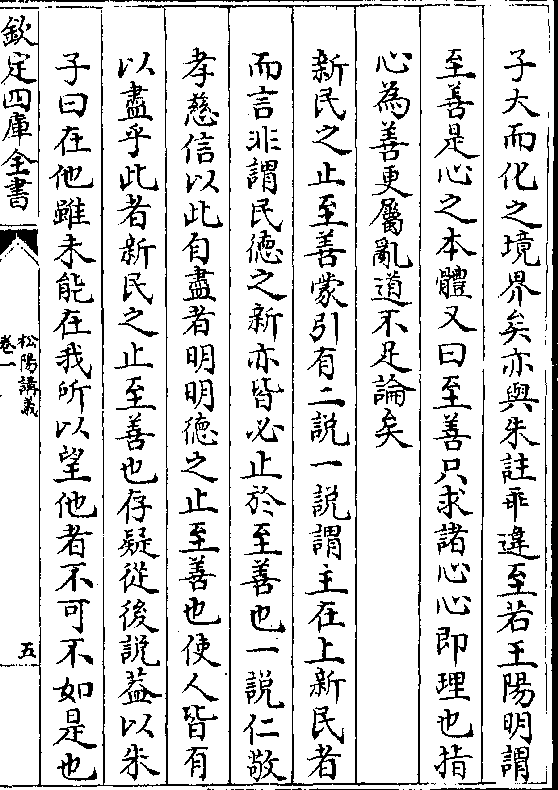 子大而化之境界矣亦與朱註乖違至若王陽明謂
至善是心之本體又曰至善只求諸心心即理也指
心為善更屬亂道不足論矣
新民之止至善蒙引有二説一説謂主在上新民者
而言非謂民德之新亦皆必止於至善也一説仁敬
孝慈信以此自盡者明明德之止至善也使人皆有
以盡乎此者新民之止至善也存疑從後説葢以朱
子曰在他雖未能在我所以望他者不可不如是也
欽定四庫全書
松陽講義
卷一
五